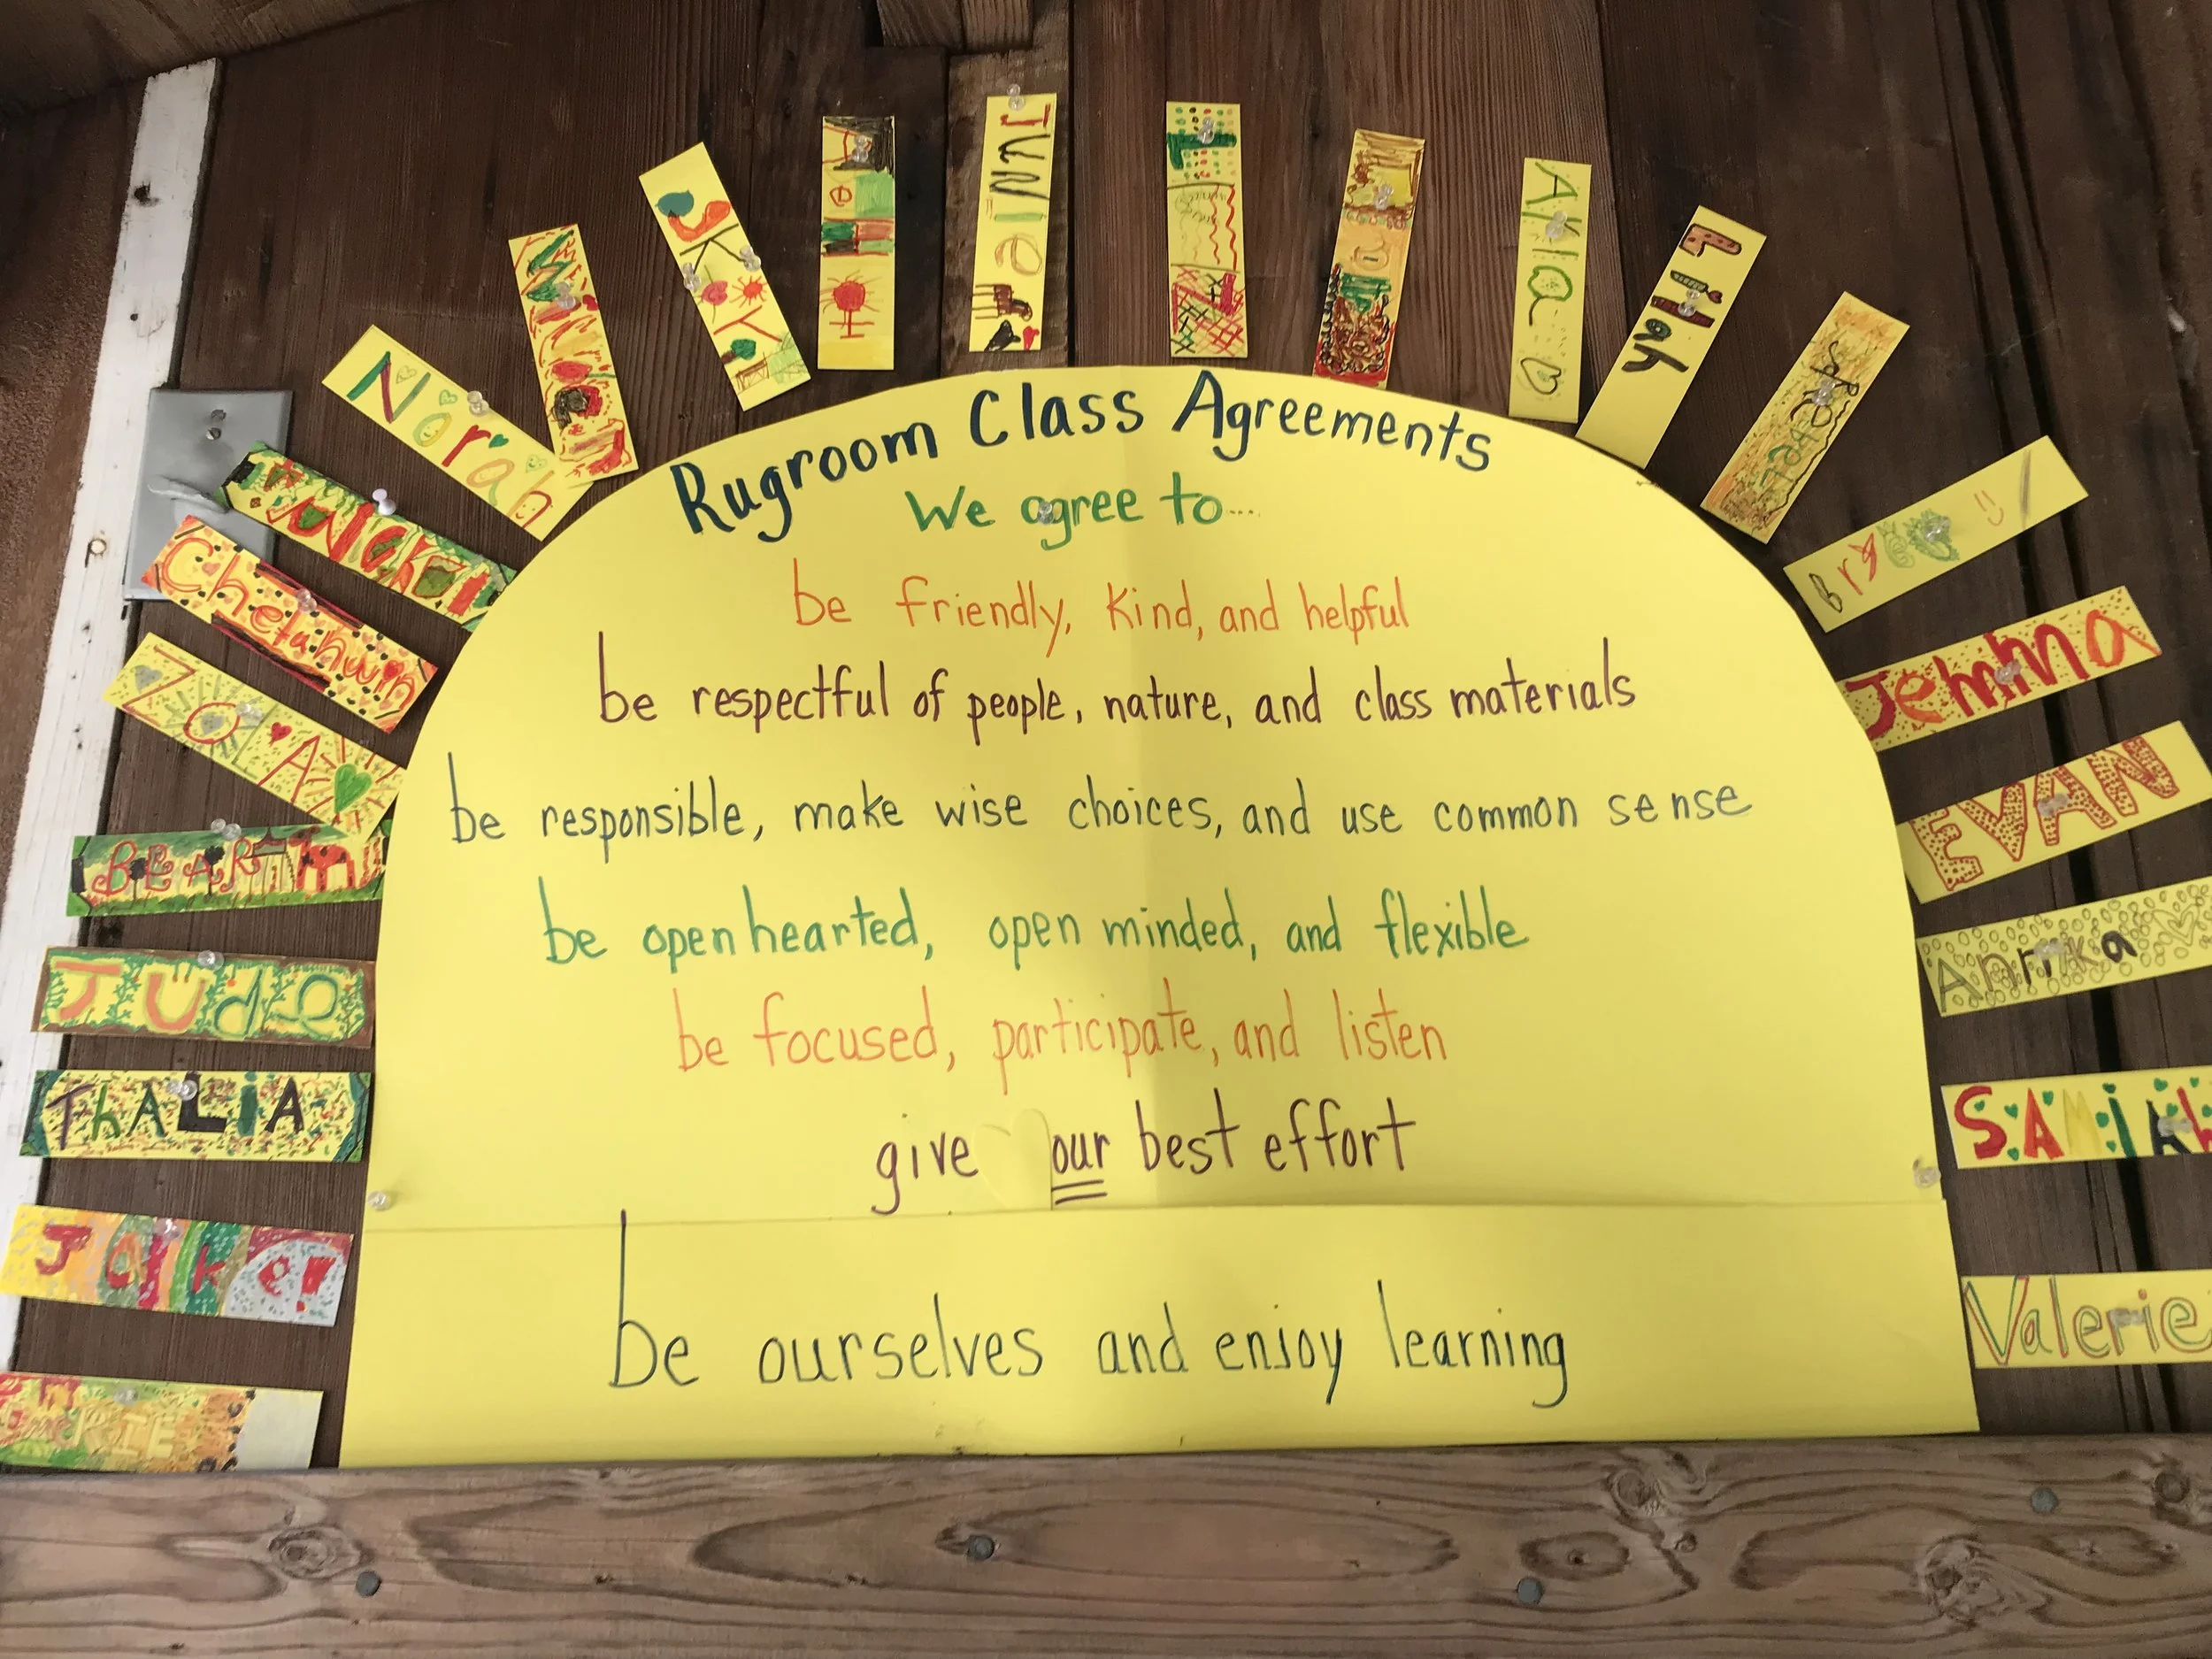 Rugroom Class Agreements
We agree to...
be friendly, kind, and helpful
be respectful of people, nature, and class materials
be responsible, make wise choices, and use common sense
be open hearted, open minded, and flexible
be focused, participate, and listen
give our best effort
be ourselves and enjoy learning
Valerie
SAMiAh
Annika
EVAN
Jemma
Bryce
Lilah
Akia
JuNie
Norah
Chetanwin
ZoA
BEAR
JUde
ThALiA